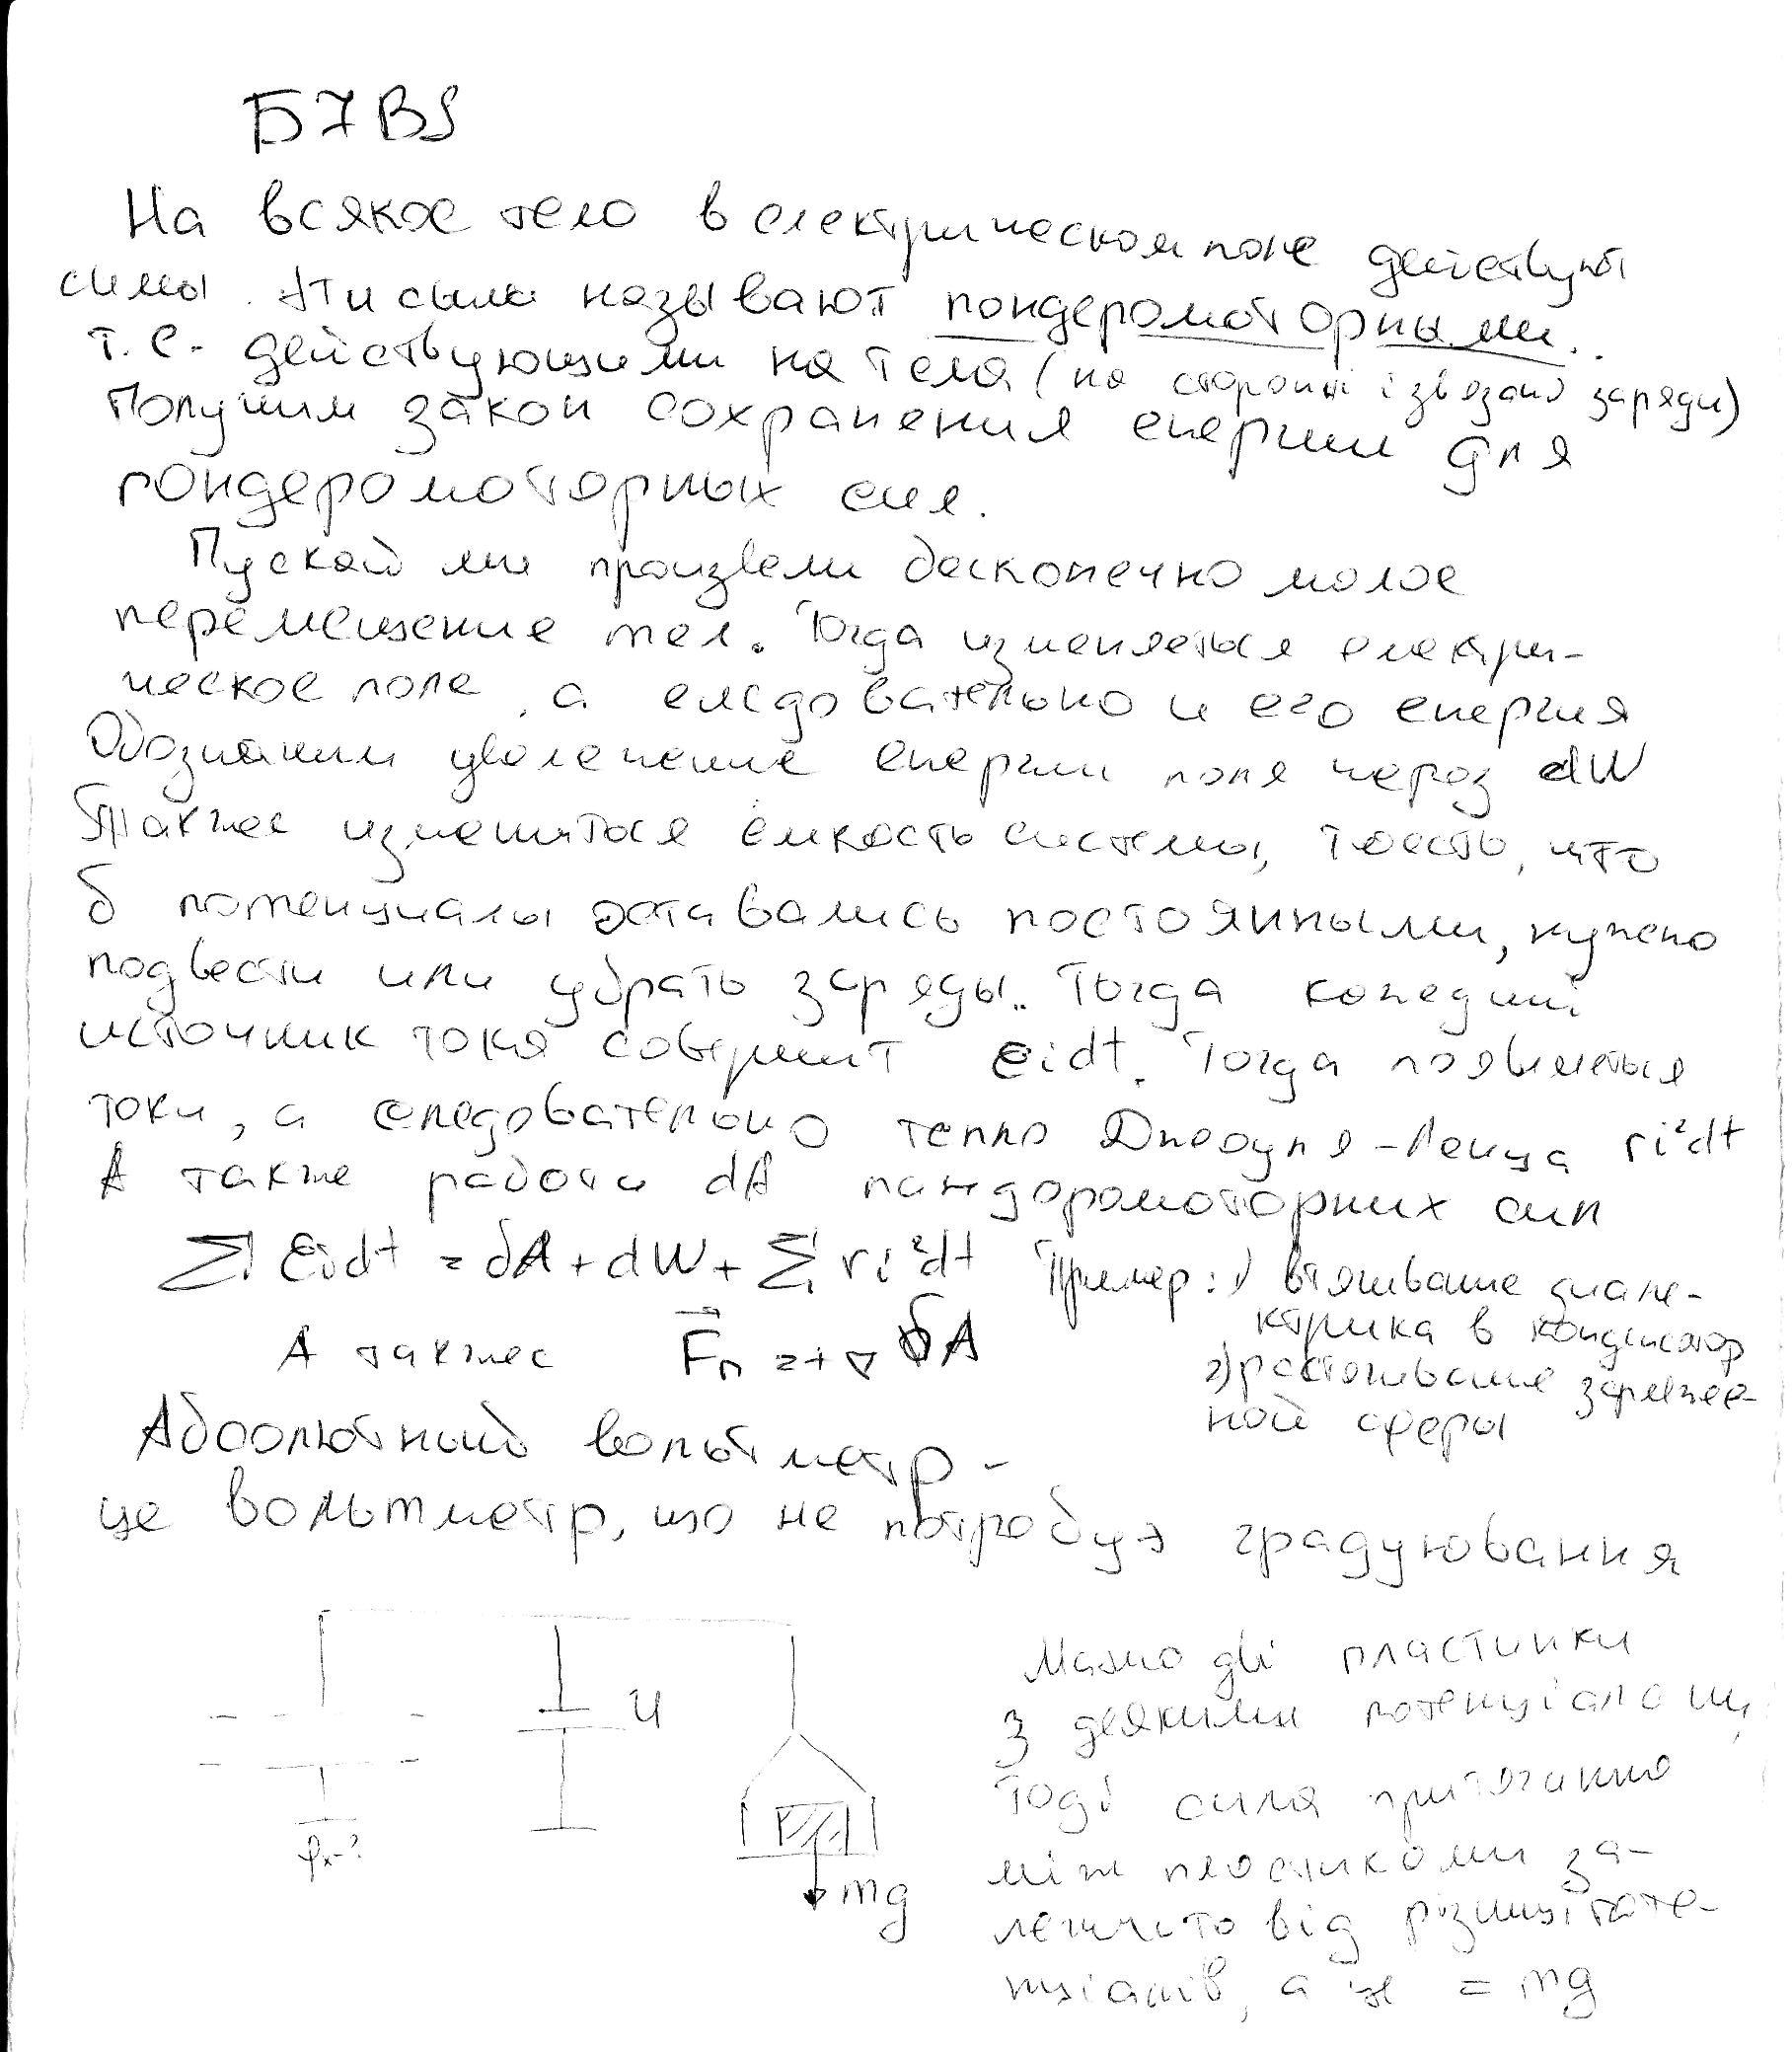 Б7В5
На всякое тело в електрическом поле действуют
силы. Эти силы называют пондеромоторными.
т.е. действующими на тела (на сторонні і звязані заряди)
Получим закон сохранения енергии для
пондеромоторных сил.
Пускай ми произвели бесконечно малое
перемещение тел. Тогда изменяеться електри-
ческое поле, а следовательно и его енергия
Обозначим увеличение енергии поля через dW
Также изменится ёмкость системы, тоесть, что
б потенциалы оставались постоянными, нужно
подвести или убрать заряды. Тогда каждий
источник тока совершит εidt. Тогда появляеться
токи, а следовательно тепло Джоуля-Ленца ri²dt
А также работа dA пандоромоторних сил
∑ εidt = δA + dW + ∑ ri²dt
Пример: 1) втягивание диэле-
ктрика в конденсатор
2) растягивание заряжен-
ной сферы
А также F⃗п = + ∇ δA
Абсолютный вольтметр -
це вольтметр, що не потребує градуювання
U
φx-?
mg
Маємо дві пластинки
з деякими потенціалами,
Тоді сила притягання
між пластиками за-
лежить від різниці поте-
нціалів, а = mg